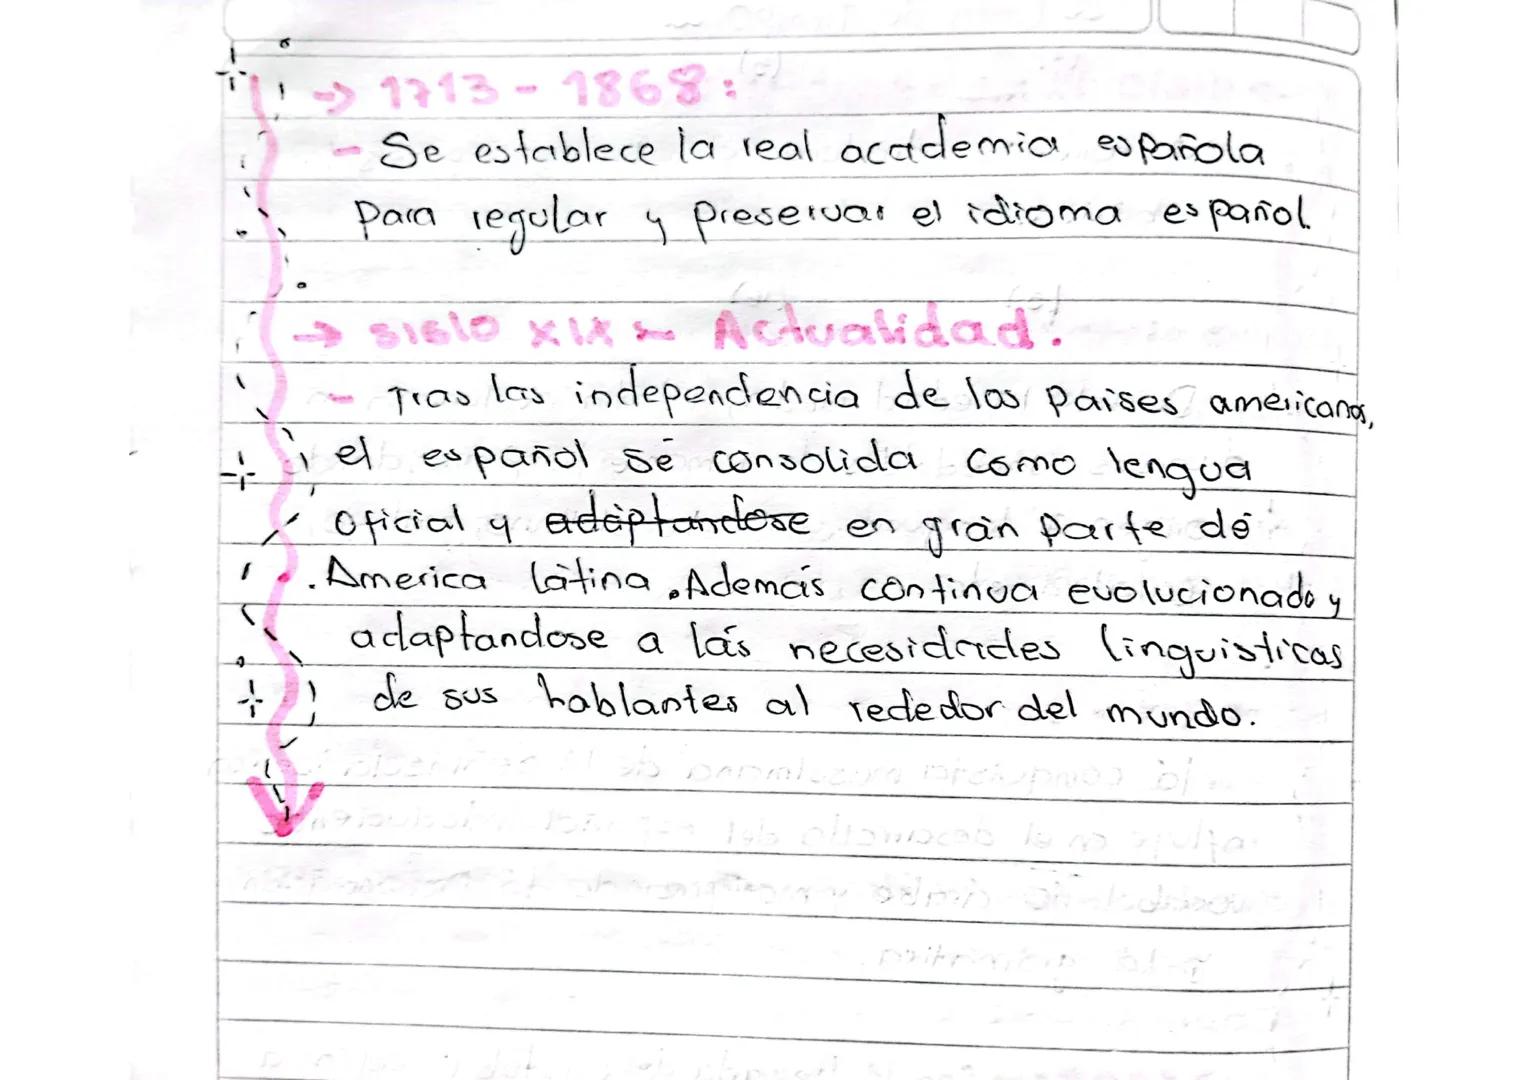 → 1713 - 1868:
- Se establece la real academia española
para regular y preservar el idioma español.
→ siglo XIX - Actualidad.
- Tras las independencia de los paises americanos,
el español se consolida como lengua
oficial y adaptandose en gran parte de
America latina. Además continua evolucionado y
adaptandose a las necesidades linguisticas
de sus hablantes al rededor del mundo.